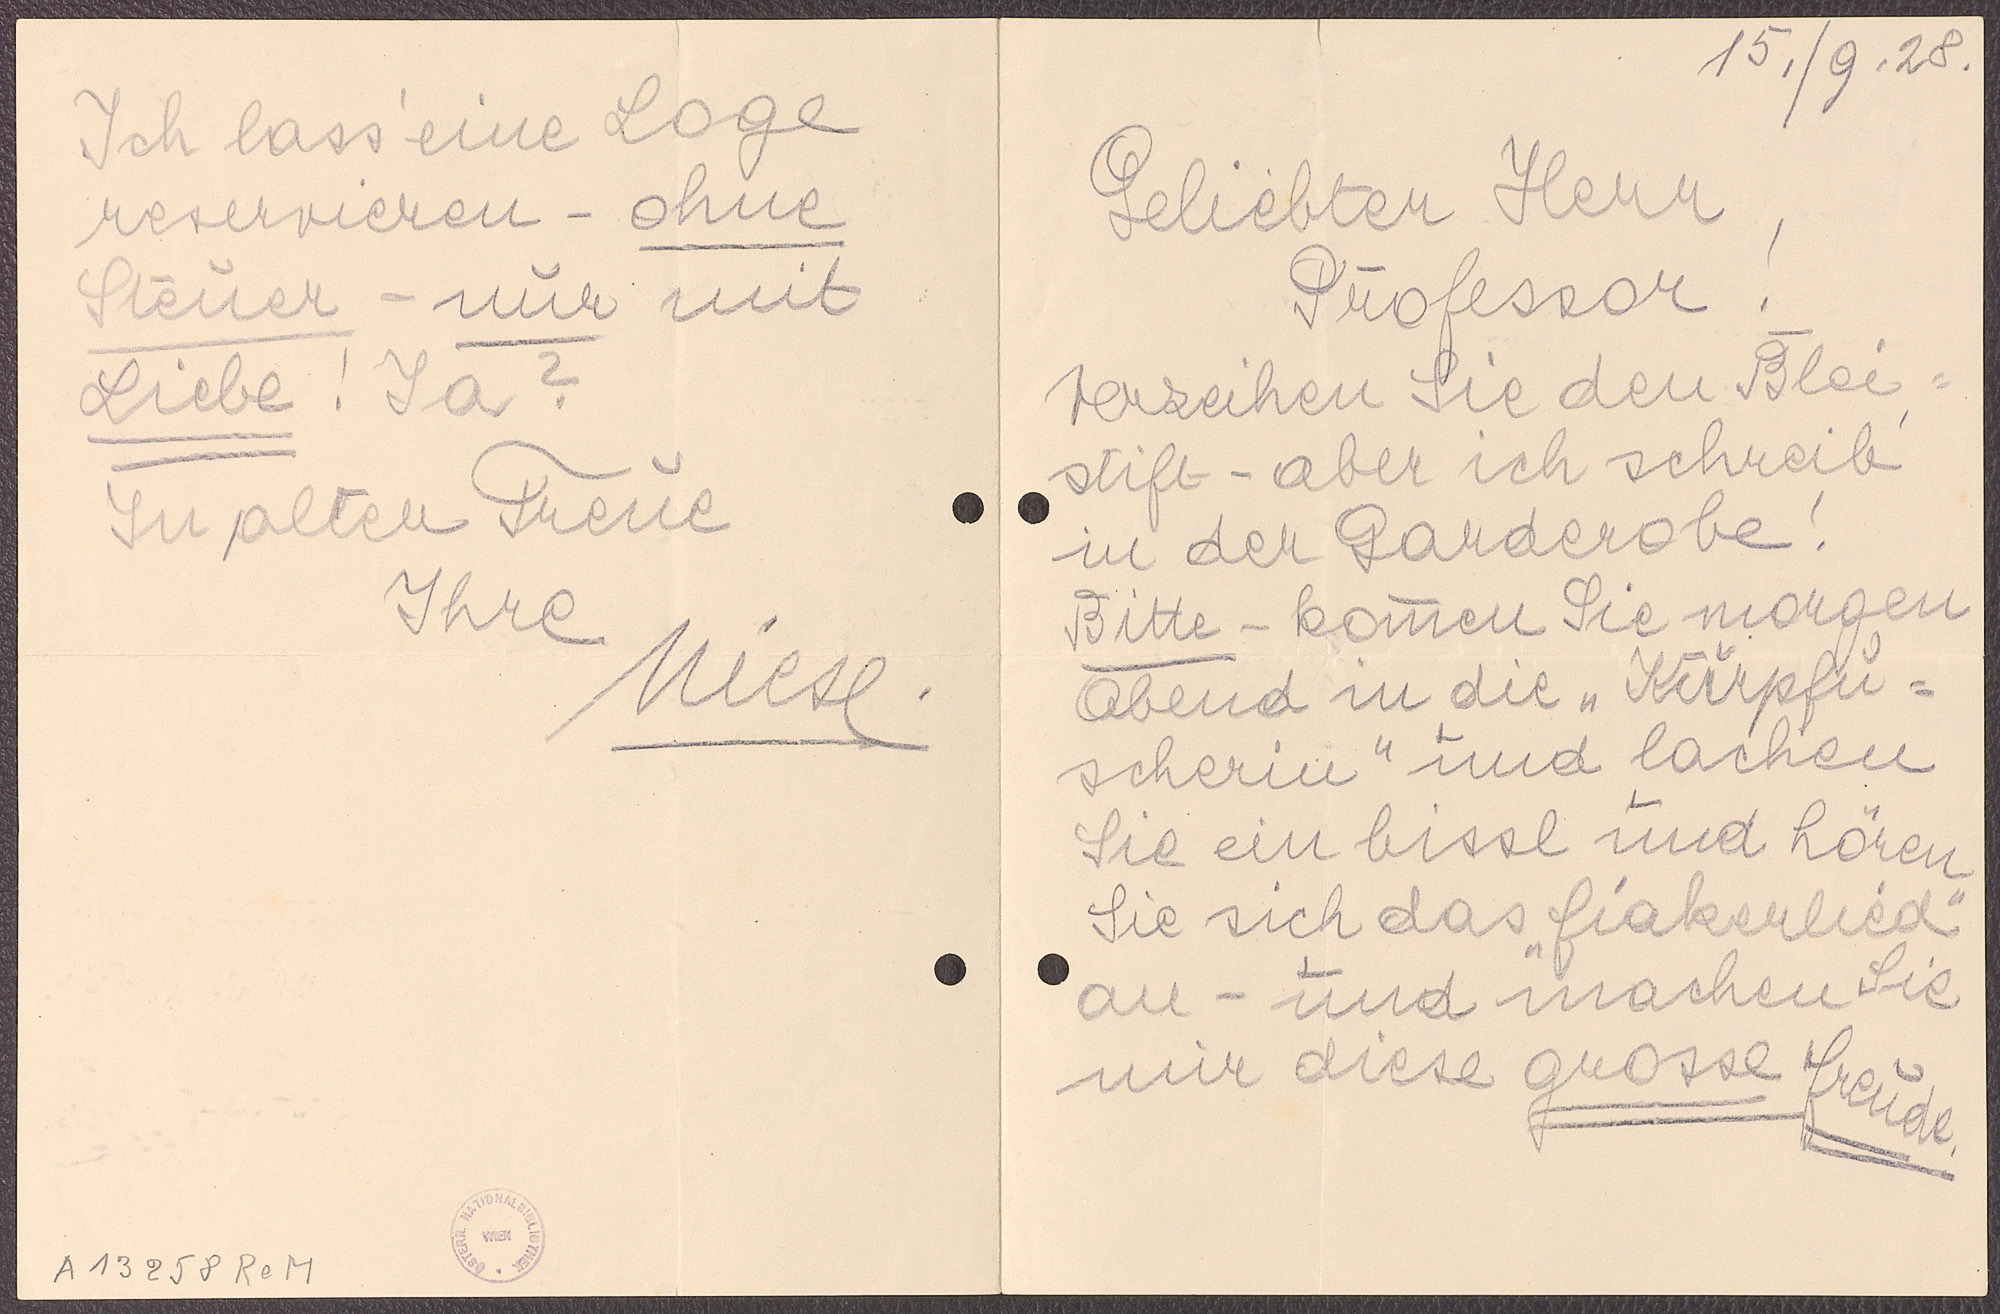 15./9.28.
Geliebter Herr
Professor!
Verzeihen Sie den Blei=
stift - aber ich schreib'
in der Garderobe!
Bitte - kom̄en Sie morgen
Abend in die „Kurpfu=
scherin" und lachen
Sie ein bissl und hören
Sie sich das „Fiakerlied"
an - und machen Sie
mir diese grosse Freude.
Ich lass' eine Loge
reservieren - ohne
Steuer - nur mit
Liebe! Ja?
In alter Treue
Ihre
Niese.
A 13258 ReM
ÖSTERR. NATIONALBIBLIOTHEK
WIEN